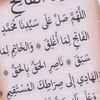 الفاتح
اللَّهُمَّ صَلِّ عَلَى سَيِّدِنَا مُحَمَّدٍ
الفَاتِحِ لِمَا أُغْلِقَ ۞ وَالخَاتِمِ لِمَا
سَبَقَ ۞ نَاصِرِ الحَقِّ بِالحَقِّ ۞
الهَادِي إِلَى صِرَاطِكَ المُسْتَقِيمِ